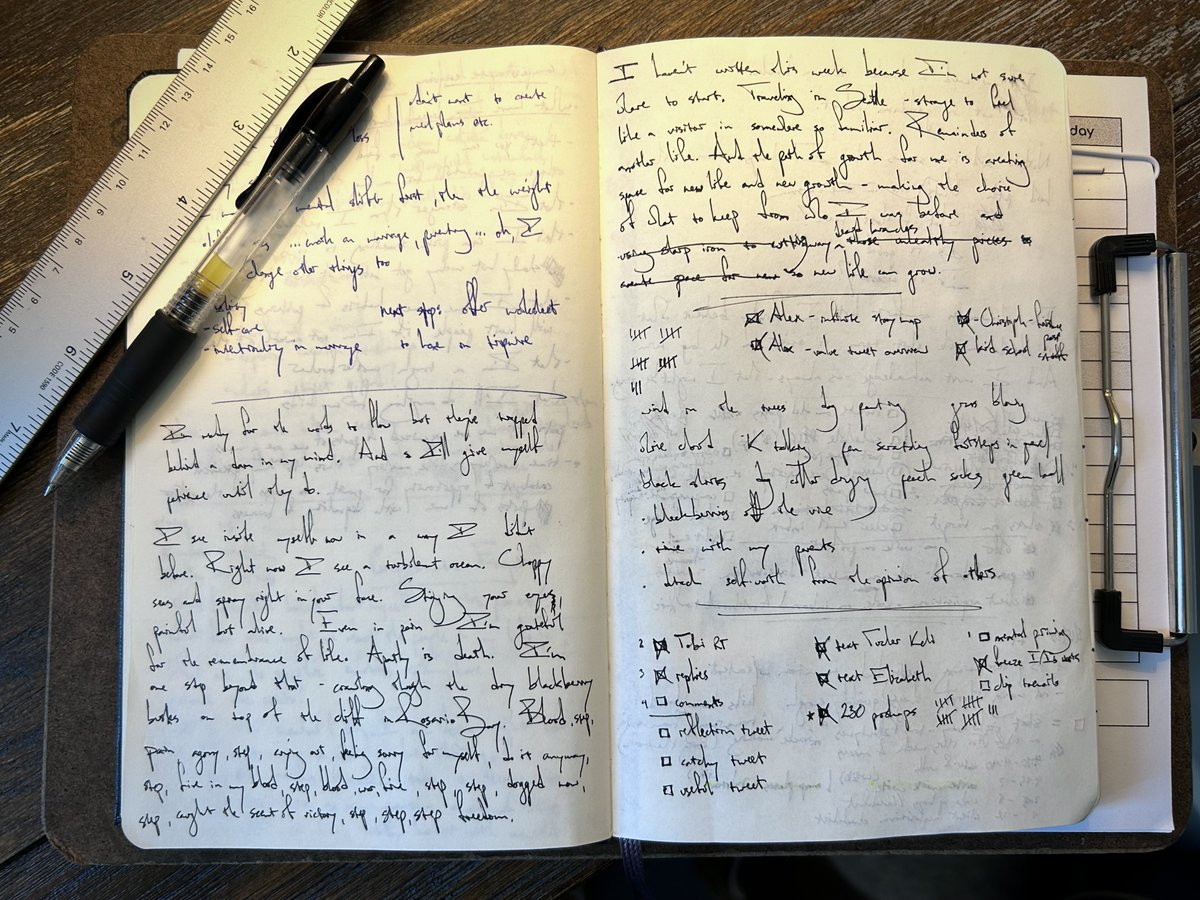 don't want to create
meal plans etc.
loss
mental shifts first, the the weight
... work on marriage, parenting ... oh, I
change other things too
next steps after worksheet
- self-care
- intentionality in marriage to hone in tripwire
I'm ready for the words to flow but they're trapped
behind a dam in my mind. And so I'll give myself
patience until they do.
I see inside myself now in a way I didn't
before. Right now I see a turbulent ocean. Choppy
seas and spray right in your face. Stinging your eyes,
painful but alive. Even in pain I'm grateful
for the remembrance of life. Apathy is death. I'm
one step beyond that - crawling through the dry blackberry
bushes on top of the cliff in Rosario Bay. Blood, step,
pain, agony, step, crying out, feeling sorry for myself, do it anyway,
step, fire in my blood, step, blood, woe, fire, step, step, dogged now,
step, caught the scent of victory, step, step, step freedom.
I haven't written this week because I'm not sure
where to start. Traveling in Seattle - strange to feel
like a visitor in somewhere so familiar. Reminders of
another life. And the path of growth for me is creating
space for new life and new growth - making the choice
of what to keep from who I was before and
dead branches
using sharp iron to cutting away those unhealthy pieces to
create space for new so new life can grow.
Alex - infinite story map
- Christoph - feature post
Alex - value tweet overview
kid school stuff
wind in the trees dog panting grass blowing
olive cloud K talking fan scratching footsteps in gravel
black stories dog collar drying peach socks green ball
. blackberries off the vine
. time with my parents
. detach self-worth from the opinion of others
2 Tobi RT
text Tucker Kelo
1 mental priming
3 replies
text Elizabeth
4 comments
230 pushups
clip toenails
reflection tweet
catchy tweet
useful tweet
day
CODE 1590
2
3
4
5
6
7
5
6
7
8
9
10
11
12
13
14
15
16